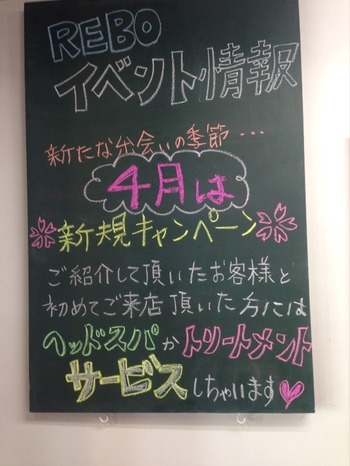 REBO
イベント情報
新たな出会いの季節・・・
4月は
新規キャンペーン
ご紹介して頂いたお客様と
初めてご来店頂いた方には
ヘッドスパかトリートメント
サービスしちゃいます